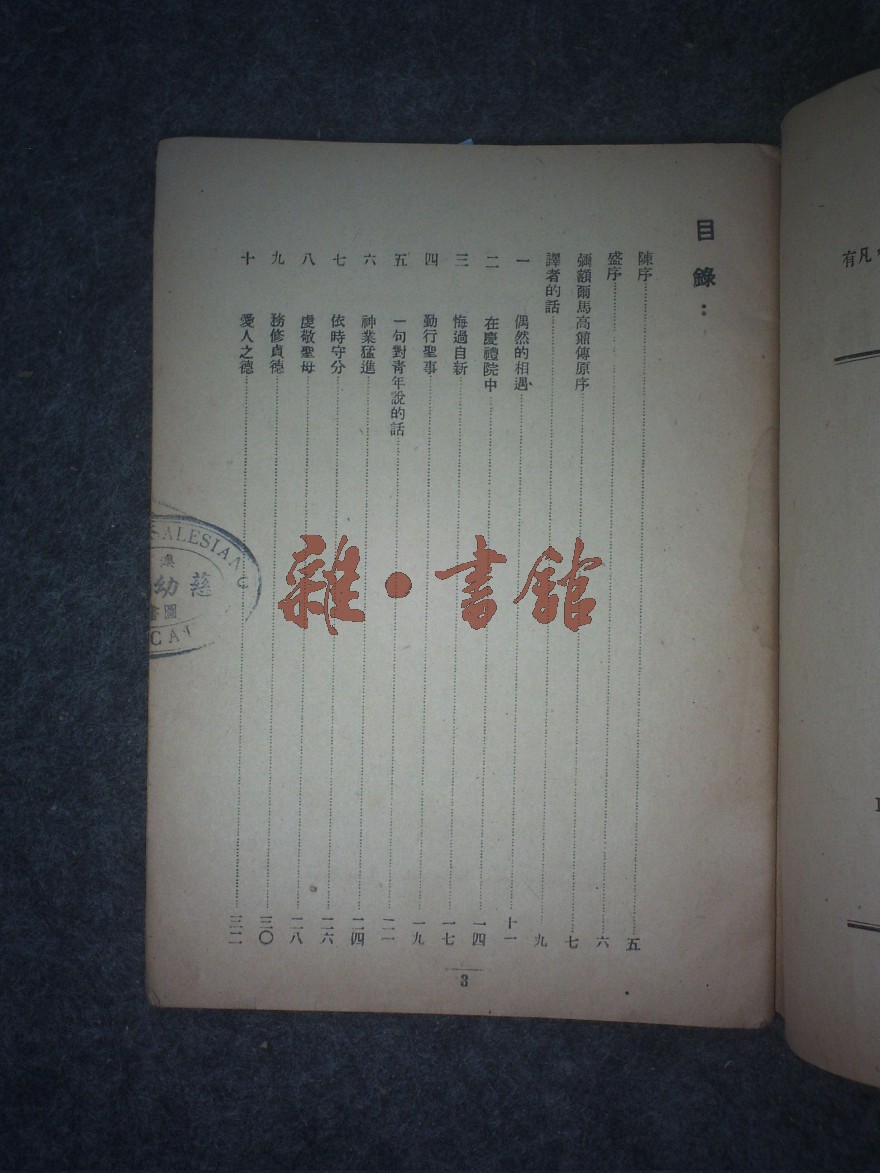 目錄：
陳序 五
盛序 六
彌額爾馬高額傳原序 七
譯者的話 九
一 偶然的相遇 十一
二 在慶禮院中 一四
三 悔過自新 一七
四 勤行聖事 一九
五 一句對青年說的話 二一
六 神業猛進 二四
七 依時守分 二六
八 虔敬聖母 二八
九 務修貞德 三〇
十 愛人之德 三二
3
雜・書館
SALESIANO
慈幼
圖書
有凡